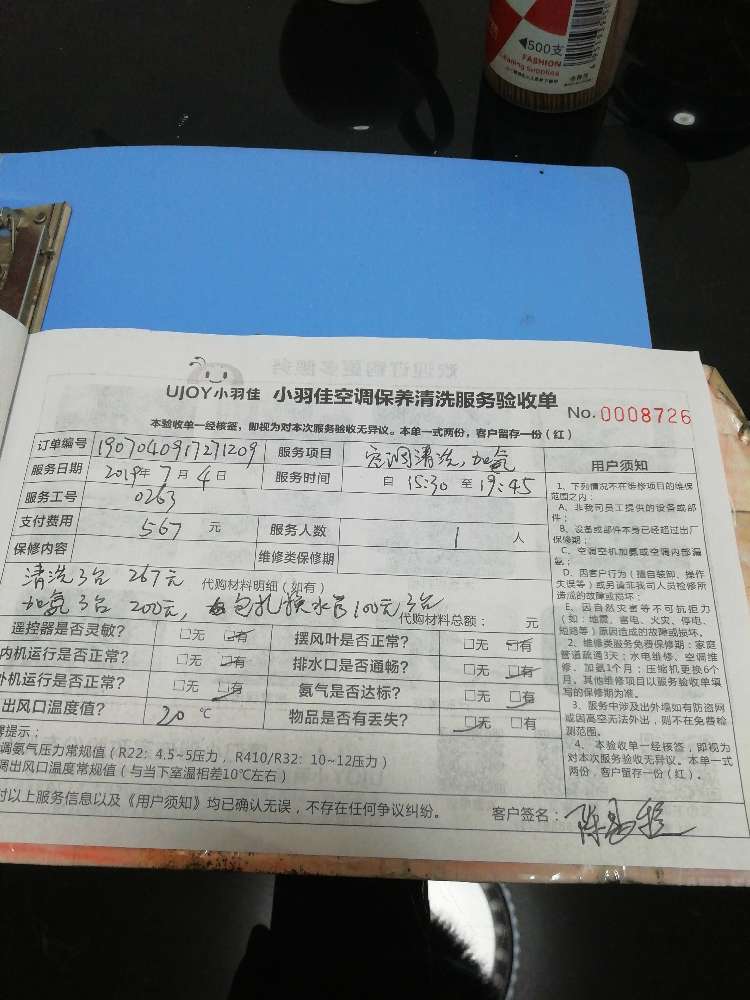 ◀500支
FASHION
UJOY小羽佳 小羽佳空调保养清洗服务验收单 No. 0008726
本验收单一经核签，即视为对本次服务验收无异议。本单一式两份，客户留存一份（红）
订单编号 1907040917271209 服务项目 空调清洗，加氨
服务日期 2019年7月4日 服务时间 自 15:30 至 19:45
服务工号 0263
支付费用 567 元 服务人数 1 人
保修内容 维修类保修期
清洗3台 267元 代购材料明细（如有）
加氨3台 200元， 包扎换水管100元3台 代购材料总额： 元
遥控器是否灵敏？ □无 □有 摆风叶是否正常？ □无 □有
内机运行是否正常？ □无 □有 排水口是否通畅？ □无 □有
外机运行是否正常？ □无 □有 氨气是否达标？ □无 □有
出风口温度值？ 20 ℃ 物品是否有丢失？ □无 □有
提示：
调氨气压力常规值（R22：4.5~5压力， R410/R32：10~12压力）
调出风口温度常规值（与当下室温相差10℃左右）
对以上服务信息以及《用户须知》均已确认无误，不存在任何争议纠纷。 客户签名：
用户须知
1、下列情况不在维修项目的维保
范围之内：
A、非我司员工提供的设备或部
件；
B、设备或部件本身已经超过出厂
保修期；
C、空调空机加氨或空调内部漏
氨；
D、因客户行为（擅自装卸、操作
失误等）或另请非我司人员检修所
造成的故障或损坏；
E、因自然灾害等不可抗拒力
（如：地震、雷电、火灾、停电、
短路等）原因造成的故障或损坏。
2、维修类服务免费保修期：家庭
管道疏通3天；水电维修、空调维
修、加氨1个月；压缩机更换6个
月，其他维修项目以服务验收单填
写的保修期为准。
3、服务中涉及出外墙如有防盗网
或因高空无法外出，则不在免费检
测范围。
4、本验收单一经核签，即视为
对本次服务验收无异议。本单一式
两份，客户留存一份（红）。